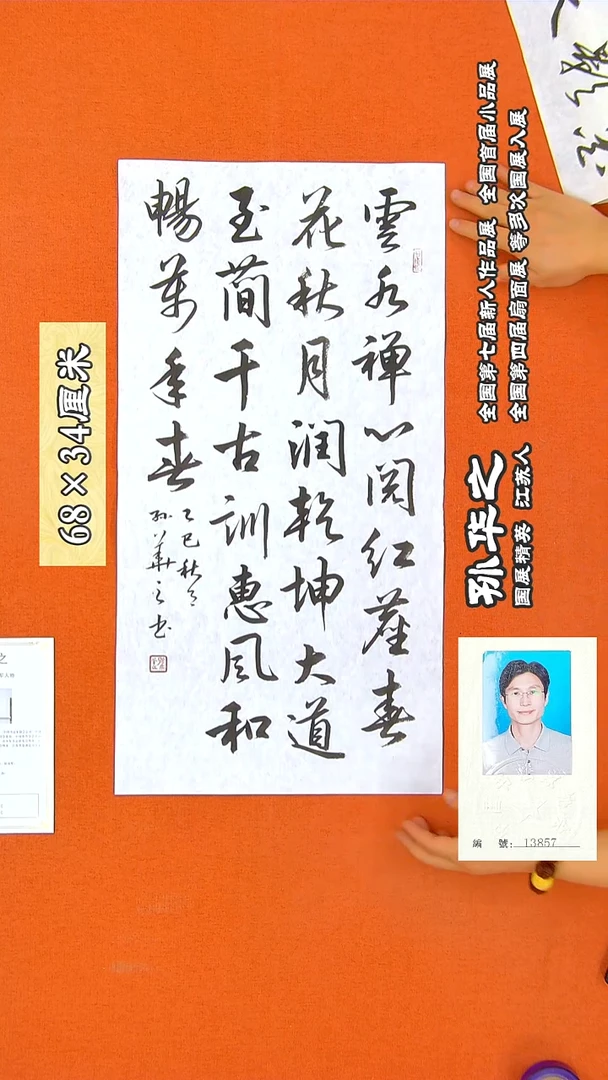 雲水禅心阅红塵春
花秋月润乾坤大道
至簡千古訓惠風和
暢萬年春
乙巳秋月
孙華之书
68×34厘米
全国第七届新人作品展 全国首届小品展
全国第四届扇面展 等多次国展入展
孙华之
国展精英 江苏人
編 號: 13857